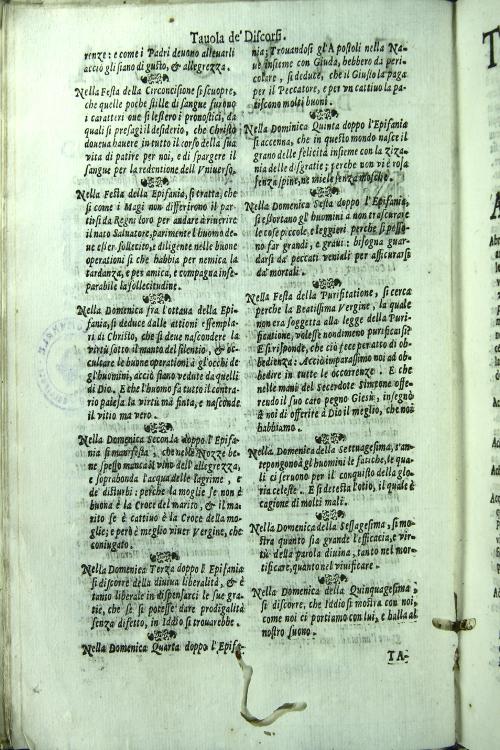 Tauola de' Discorsi.
renze: e come i Padri deuono alleuarli
acciò gli siano di gusto, & allegrezza.
Nella Festa della Circoncisione si scuopre,
che quelle poche stille di sangue furono
i caratteri oue si lessero i pronostici, da
quali si presagì il desiderio, che Christo
doueua hauere in tutto il corso della sua
vita di patire per noi, e di spargere il
sangue per la redentione dell'Vniuerso.
Nella Festa della Epifania, si tratta, che
si come i Magi non differirono il par-
tirsi da Regni loro per andare à riuerire
il nato Saluatore, parimente l'huomo de-
ue esser sollecito, e diligente nelle buone
operationi si che habbia per nemica la
tardanza, e per amica, e compagna inse-
parabile la sollecitudine.
Nella Domenica fra l'ottaua della Epi-
fania, si deduce dalle attioni essempla-
ri di Christo, che si deue nascondere la
virtù sotto il manto del silentio, & oc-
cultare le buone operationi à gl'occhi de
gl'huomini, acciò siano vedute da quelli
di Dio. E che l'huomo fa tutto il contra-
rio palesa la virtù mà finta, e nasconde
il vitio ma vero.
Nella Domenica Seconda doppo l'Epifa-
nia si manifesta, che nelle Nozze be-
ne spesso manca il vino dell'allegrezza,
e soprabonda l'acqua delle lagrime, e
de' disturbi: perche la moglie se non è
buona è la Croce del marito, & il ma-
rito se è cattiuo è la Croce della mo-
glie; e però è meglio viuer Vergine, che
coniugato.
Nella Domenica Terza doppo l'Epifania
si discorre della diuina liberalità, & è
tanto liberale in dispensarci le sue gra-
tie, che se si potesse dare prodigalità
senza difetto, in Iddio si trouarebbe.
Nella Domenica Quarta doppo l'Epifa-
nia; Trouandosi gl'Apostoli nella Na-
ue insieme con Giuda, hebbero da peri-
colare, si deduce, che il Giusto la paga
per il Peccatore, e per vn cattiuo la pa-
tiscono molti buoni.
Nella Dominica Quinta doppo l'Epifania
si accenna, che in questo mondo nasce il
grano delle felicità insieme con la ziza-
nia delle disgratie; perche non vi è rosa
senza spine, ne miele senza mosche.
Nella Domenica Sesta doppo l'Epifania,
si essortano gl'huomini a non trascurare
le cose picciole, e leggieri perche si posso-
no far grandi, e graui: bisogna guar-
darsi da' peccati veniali per assicurarsi
da' mortali.
Nella Festa della Purificatione, si cerca
perche la Beatissima Vergine, la quale
non era soggetta alla legge della Puri-
ficatione, volesse nondimeno purificarsi?
E si risponde, che ciò fece per atto di ob-
bedienza: Acciò imparassimo noi ad ob-
bedire in tutte le occorrenze. E che
nelle mani del Sacerdote Simeone offe-
rendo il suo caro pegno Giesù, insegnò
à noi di offerire à Dio il meglio, che noi
habbiamo.
Nella Domenica della Settuagesima, s'an-
tepongono à gl'huomini le fatiche, le qua-
li ci seruono per il conquisto della glo-
ria celeste. E si detesta l'otio, il quale è
cagione di molti mali.
Nella Domenica della Sessagesima, si mo-
stra quanto sia grande l'efficacia, e vir-
tù della parola diuina, tanto nel mor-
tificare, quanto nel viuificare.
Nella Domenica della Quinquagesima,
si discorre, che Iddio si mostra con noi,
come noi ci portiamo con lui, e balla al
nostro suono.
TA-